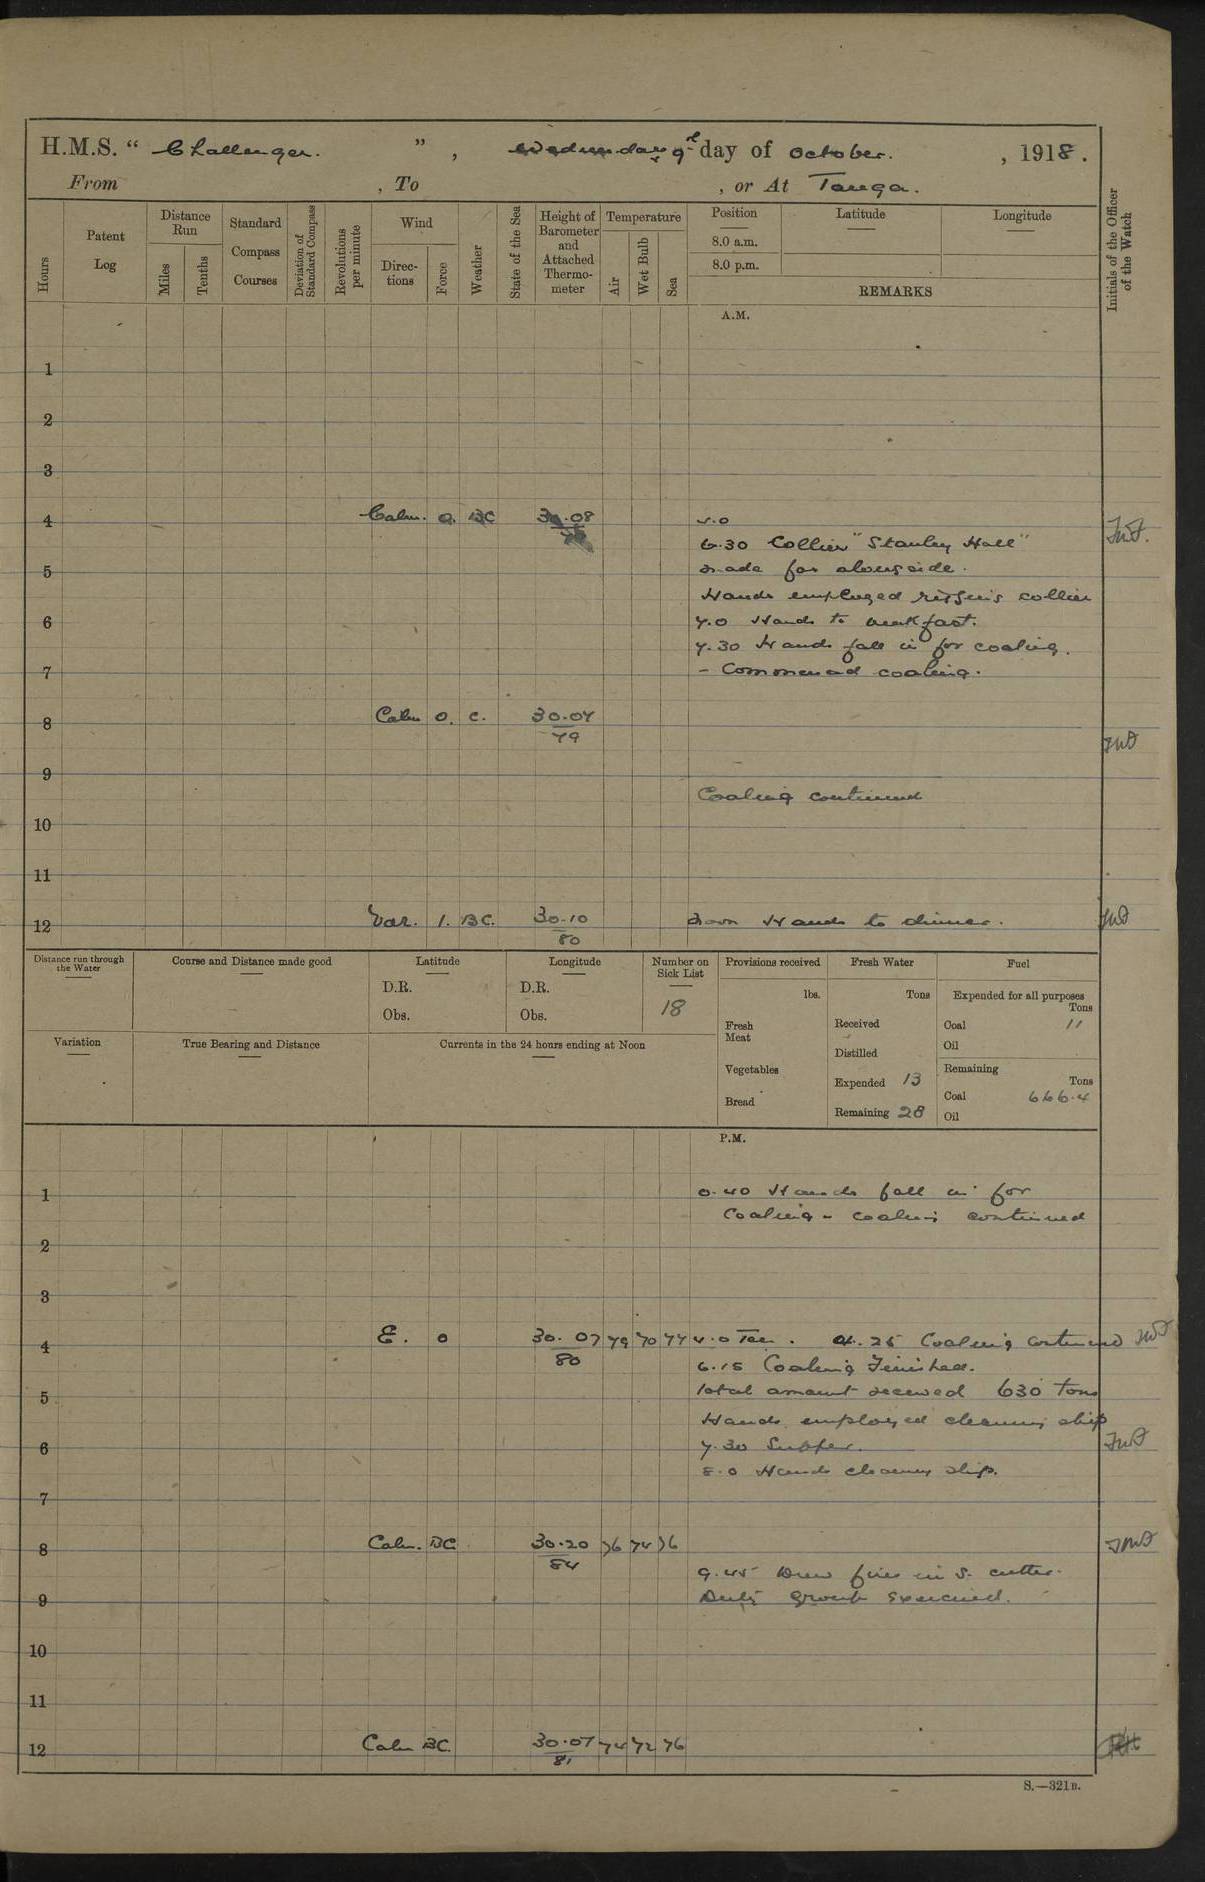 H.M.S. “ Challenger. ” , Wednesday 9th day of October. , 1918.
From , To , or At Tanga.
Hours
Patent Log
Distance Run
Miles
Tenths
Standard Compass Courses
Deviation of Standard Compass
Revolutions per minute
Wind
Direc-tions
Force
Weather
State of the Sea
Height of Barometer and Attached Thermo-meter
Temperature
Air
Wet Bulb
Sea
Position
8.0 a.m.
8.0 p.m.
Latitude
Longitude
REMARKS
Initials of the Officer of the Watch
A.M.
1
2
3
4 Calm. 0. BC 30.08
6.30 Collier "Stanley Hall"
made fas alongside.
5
Hands employed rigging collier
6 7.0 Hands to breakfast.
7.30 Hands fall in for coaling.
7 - Commenced coaling.
8 Calm 0. C. 30.07
79
9
Coaling continued
10
11
12 Var. 1. BC. 30.10 Noon Hands to dinner.
80
Distance run through the Water
Course and Distance made good
Latitude
D.R.
Obs.
Longitude
D.R.
Obs.
Number on Sick List
18
Provisions received
lbs.
Fresh Meat
Vegetables
Bread
Fresh Water
Tons
Received
Distilled
Expended 13
Remaining 28
Fuel
Expended for all purposes
Tons
Coal 11
Oil
Remaining
Tons
Coal 666.4
Oil
Variation
True Bearing and Distance
Currents in the 24 hours ending at Noon
P.M.
1 0.40 Hands fall in for
Coaling - coaling continued
2
3
4 E. 0 30.07 79 70 77 4.0 Tea. 4.25 Coaling continued
80
6.15 Coaling Finished.
5 Total amount received 630 Tons
Hands employed cleaning ship
6 7.30 Supper.
8.0 Hands cleaning ship.
7
8 Calm. BC 30.20 76 74 76
84
9.45 Drew fires in S. cutter.
9 Duty group exercised.
10
11
12 Calm BC. 30.07 74 72 76
81
S.—321B.